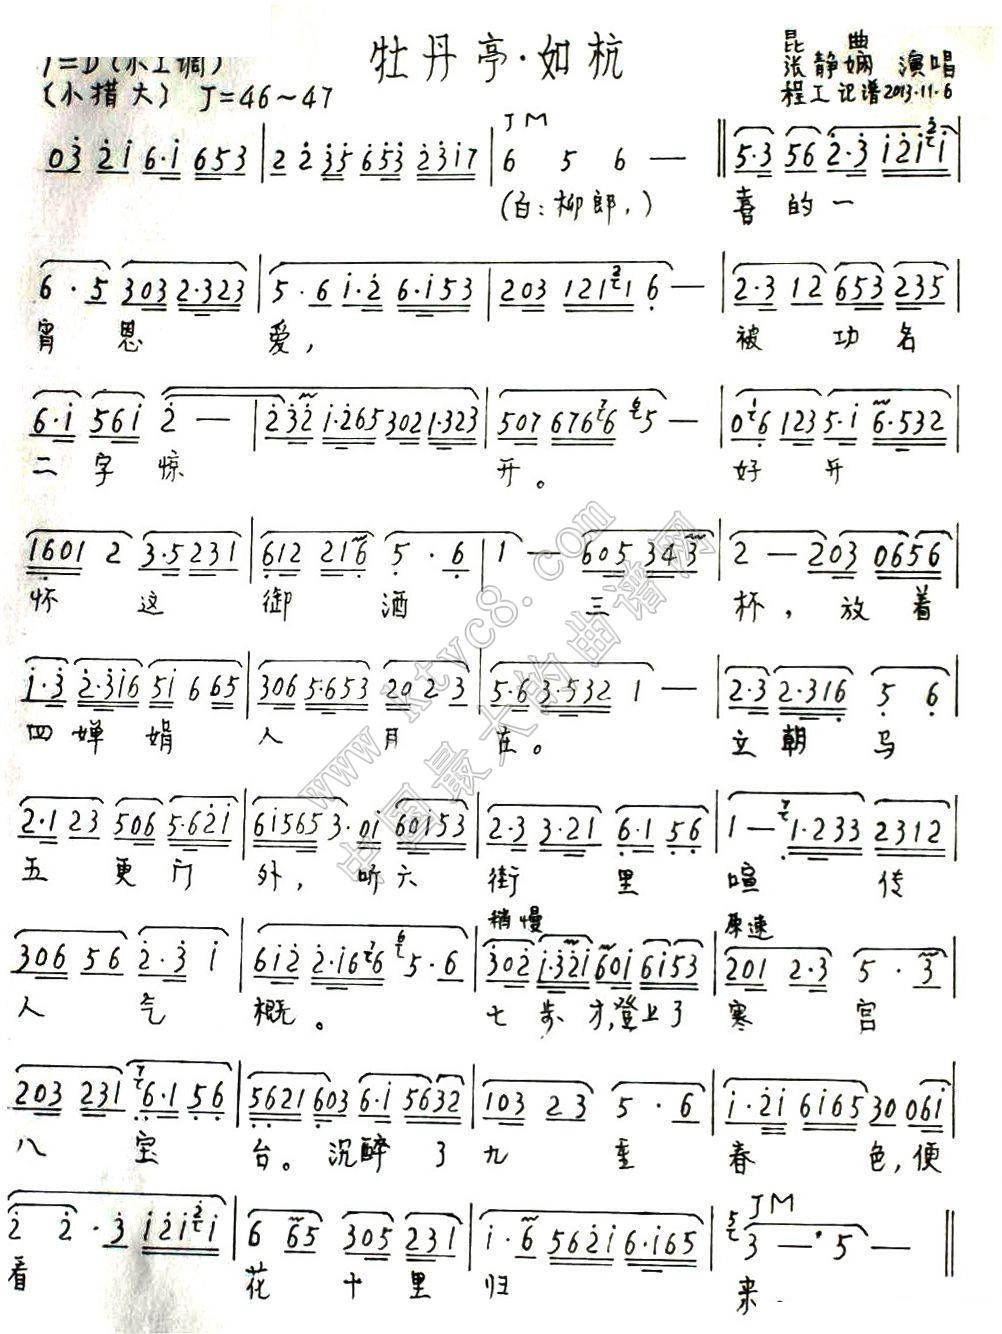 牡丹亭·如杭
昆曲
张静娴 演唱
程工记谱2013.11.6
1=D（小工调）
（小措大） J=46~47
03 21 6·1 653 | 2 235 653 2317 | JM 6 5 6 — ‖ 5·3 56 2·3 1211
（白：柳郎，） 喜的一
6·5 303 2·323 | 5·6 1·2 6·153 | 203 1211 6 — | 2·3 12 653 235
宵恩爱， 被功名
6·1 561 2 — | 232 1·265 3021·323 | 507 6766 5 — | 06 123 5·1 6·532
二字惊开。 好开
1601 2 3·5231 | 612 216 5·6 | 1 — 605 343 | 2 — 203 0656
怀这御酒三杯，放着
1·3 2·316 51 6 65 | 306 5·653 20 2 3 | 5·6 3·532 1 — | 2·3 2·316 5 6
四婵娟人月在。 立朝马
2·1 23 506 5·621 | 61565 3·01 60153 | 2·3 3·21 6·1 56 | 1 — 1·233 2312
五更门外，听六街里喧传
稍慢 原速
306 56 2·3 1 | 612 2·1676 5·6 | 302 1·321 601 6153 | 201 2·3 5·3
人气概。 七步才，登上了寒宫
203 231 6·1 56 | 5621 603 6·1 5632 | 103 23 5·6 | 1·21 6165 30 061
八宝台。沉醉了九重春色，便
JM
2 2·3 1211 | 6 65 305 231 | 1·6 5621 6·165 | 3 — 5 — ‖
看花十里归来。
www.ktyc8.com
中国最大的曲谱网